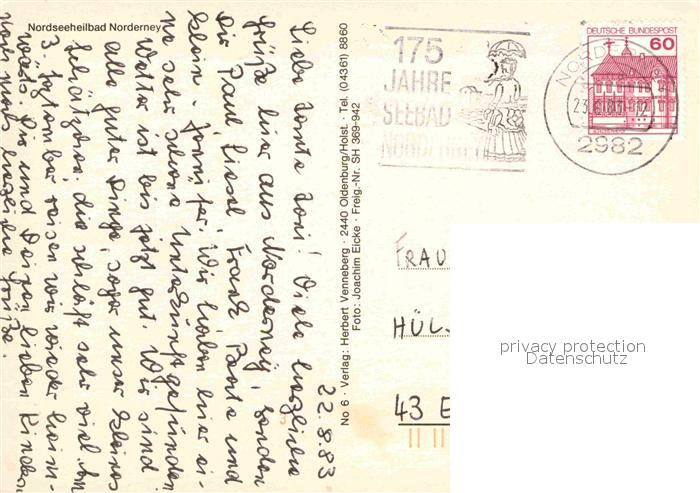 Nordseeheilbad Norderney
22.8.83
Liebe Tante Toni! Viele herzliche
Grüße hier aus Norderney, senden
Dir Paul Liesel Frank Beate und
klein Jennifer. Wir haben hier ei-
ne sehr schöne Unterkunft gefunden
Wetter ist bis jetzt gut. Wir sind
alle guter Dinge, sogar unser kleines
Schätzchen, die schläft sehr viel. Am
3. September reisen wir wieder heim-
wärts. Dir und Deinen lieben Kindern
nochmals herzliche Grüße.
No 6 · Verlag: Herbert Venneberg · 2440 Oldenburg/Holst. · Tel. (04361) 8860
Foto: Joachim Eicke · Freig.-Nr. SH 369-942
175
JAHRE
SEEBAD
NORDERNEY
DEUTSCHE BUNDESPOST
60
2982
FRAU
HÜL
43 E
privacy protection
Datenschutz